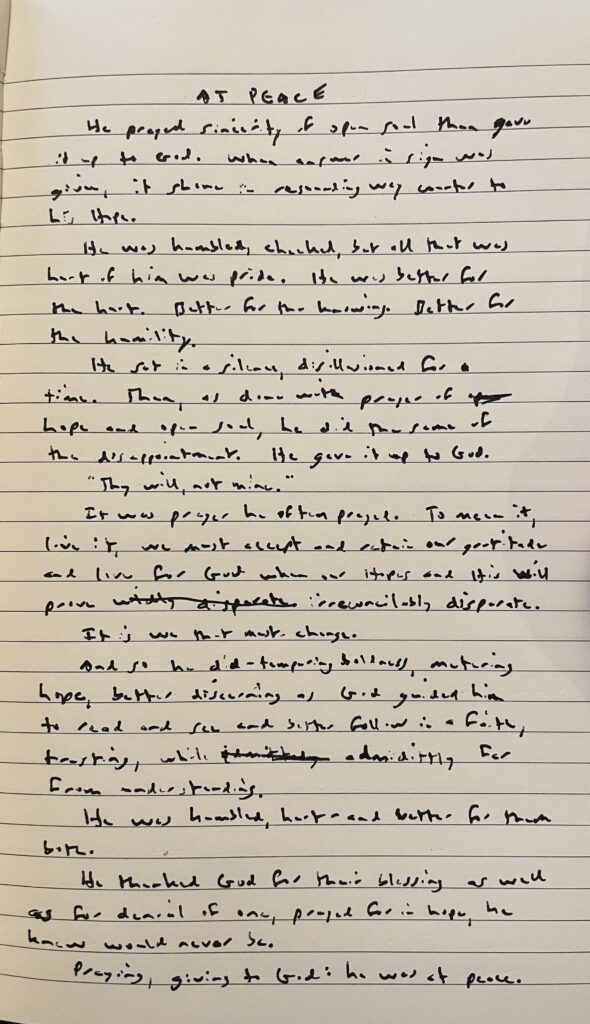 AT PEACE
He prayed sincerity of open soul then gave
it up to God. When answer in sign was
given, it shone in resounding way counter to
his Hope.
He was humbled, checked, but all that was
hurt of him was pride. He was better for
the hurt. Better for the knowing. Better for
the humility.
He sat in a silence, disillusioned for a
time. Then, as done with prayer of
hope and open soul, he did the same of
the disappointment. He gave it up to God.
"Thy will, not mine."
It was prayer he often prayed. To mean it,
live it, we must accept and retain our gratitude
and live for God when our Hopes and His will
prove wildly disparate irreconcilably disparate.
It is we that must change.
And so he did - tempering boldness, maturing
hope, better discerning as God guided him
to read and see and better follow in a faith,
trusting, while admittedly admidittly far
from understanding.
He was humbled, hurt - and better for them
both.
He thanked God for their blessing as well
as for denial of one, prayed for in hope, he
knew would never be.
Praying, giving to God: he was at peace.